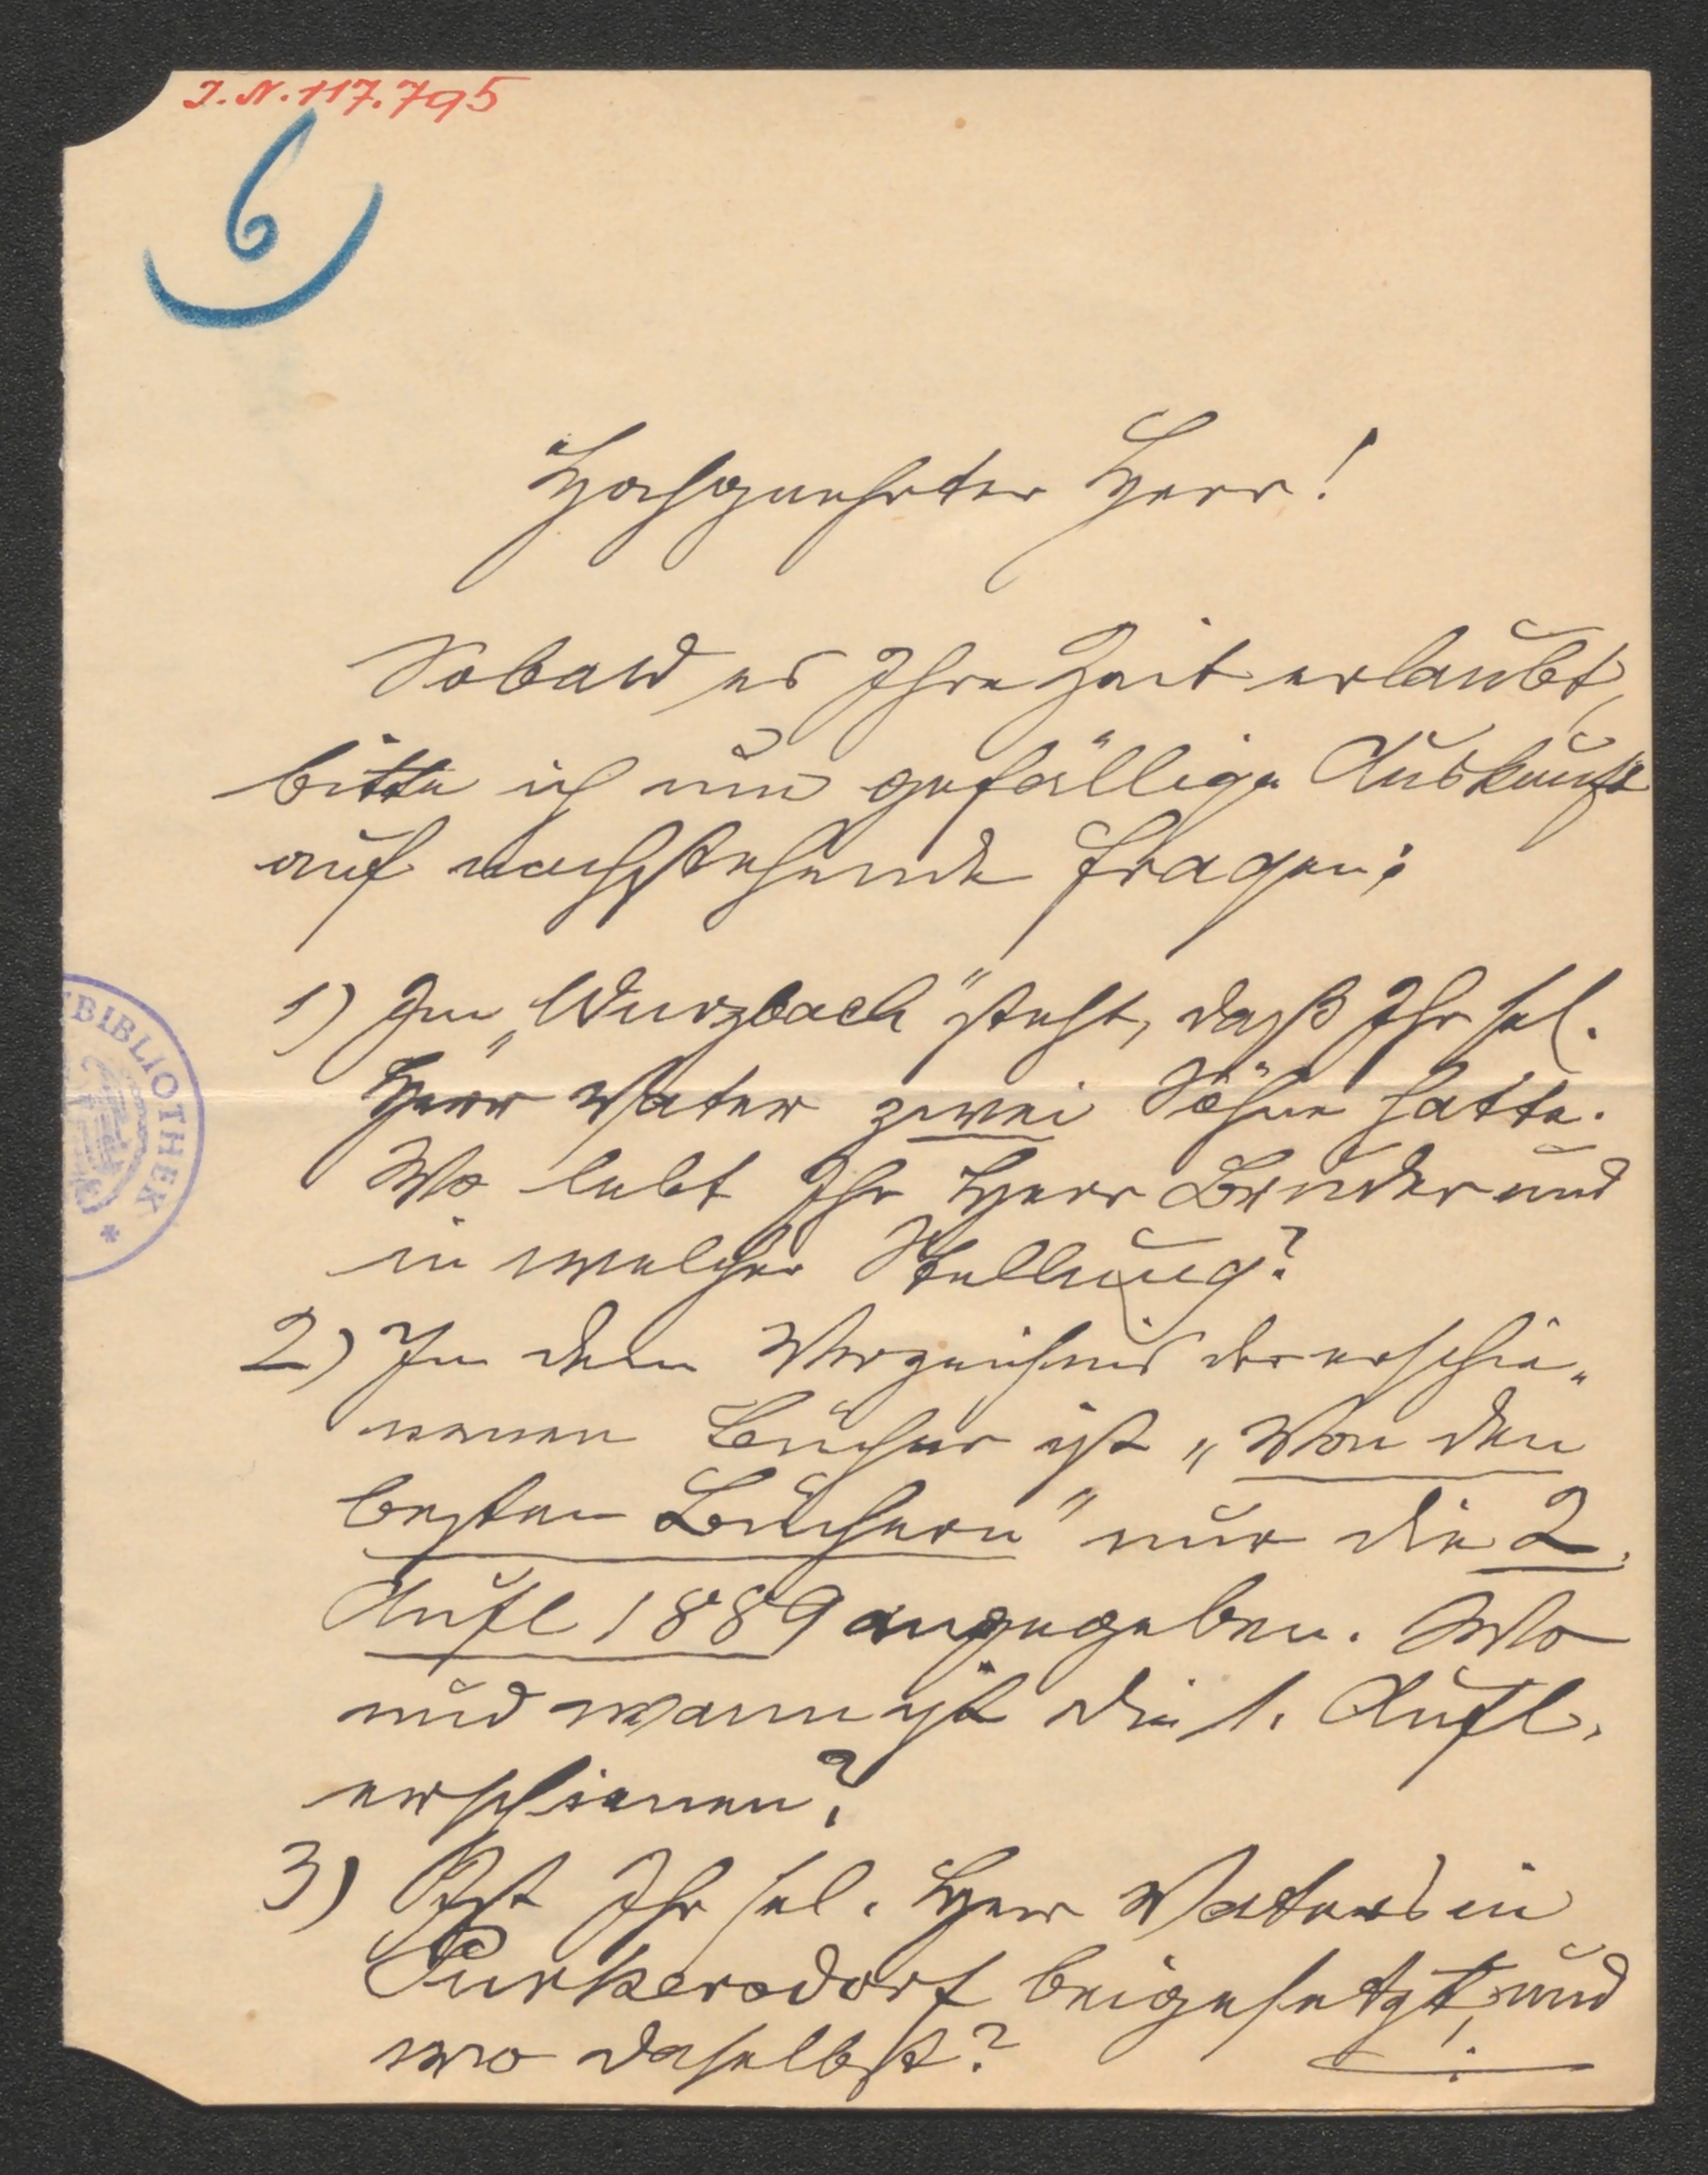 J. N. 117.795
6
Hochgeehrter Herr!
Sobald es Ihre Zeit erlaubt,
bitte ich um gefällige Auskunft
auf nachstehende Fragen:
1) Im „Wurzbach" steht, daß Ihr sel.
Herr Vater zwei Söhne hatte.
Wo lebt Ihr Herr Bruder und
in welcher Stellung?
2) In dem Verzeichnis der erschie„
nenen Bücher ist „Von den
besten Büchern" nur die 2.
Aufl 1889 angegeben. Wo
und wann ist die 1. Aufl.
erschienen?
3) Ist Ihr sel. Herr Vater in
Purkersdorf beigesetzt, und
wo daselbst?
BIBLIOTHEK *